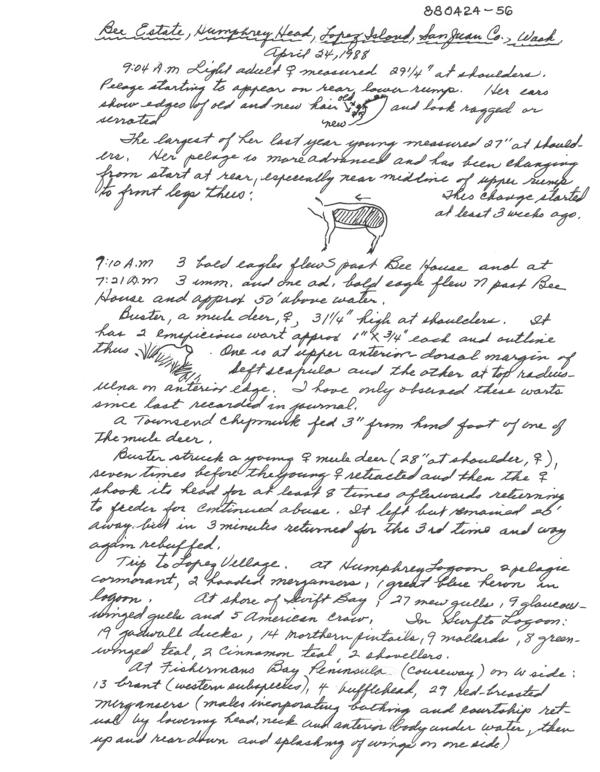 880424-56
Bee Estate, Humphrey Head, Lopez Island, San Juan Co., Wash.
April 24, 1988
9:04 A.M Light adult ♀ measured 29 1/4" at shoulders.
Pelage starting to appear on rear, lower rump. Her ears
show edges of old and new hair old new and look ragged or
serrated
The largest of her last year young measured 27" at should-
ers. Her pelage is more advanced and has been changing
from start at rear, especially near midline of upper rump
to front legs thus: This change started
at least 3 weeks ago.
9:10 A.M 3 bald eagles flew S past Bee House and at
7:21 A.M 3 imm. and one ad. bald eagle flew N past Bee
House and approx 50' above water.
Buster, a mule deer, ♀, 31 1/4" high at shoulders. It
has 2 conspicious wart approx 1" x 3/4" each and outline
thus . One is at upper anterior dorsal margin of
left scapula and the other at top radius-
ulna on anterior edge. I have only observed these warts
since last recorded in journal.
A Townsend Chipmunk fed 3" from hind foot of one of
the mule deer.
Buster struck a young ♀ mule deer (28" at shoulder, ♀),
seven times before the young ♀ retracted and then the ♀
shook its head for at least 8 times afterwards returning
to feeder for continued abuse. It left but remained 20'
away but in 3 minutes returned for the 3rd time and was
again rebuffed.
Trip to Lopez Village. At Humphrey Lagoon 2 pelagic
cormorant, 2 hooded mergansers, 1 great blue heron in
lagoon. At shore of Swift Bay, 27 mew gulls, 9 glaucous-
winged gulls and 5 American crow. In Swifts Lagoon:
19 gadwall ducks, 14 northern pintails, 9 mallards, 8 green-
winged teal, 2 Cinnamon teal, 2 shovellers.
At Fishermans Bay Peninsula (causeway) on W side:
13 brant (western subspecies), 4 bufflehead, 29 Red-breasted
mergansers (males incorporating bathing and courtship rit-
ual by lowering head, neck and anterior body under water, then
up and rear down and splashing of wings on one side)